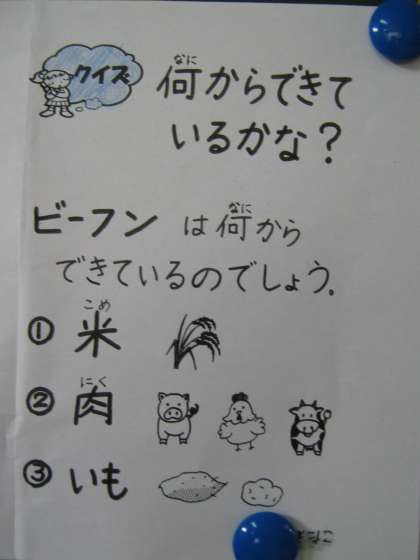 クイズ
何からできて
なに
いるかな？
ビーフン は何から
なに
できているのでしょう.
① 米
こめ
② 肉
にく
③ いも